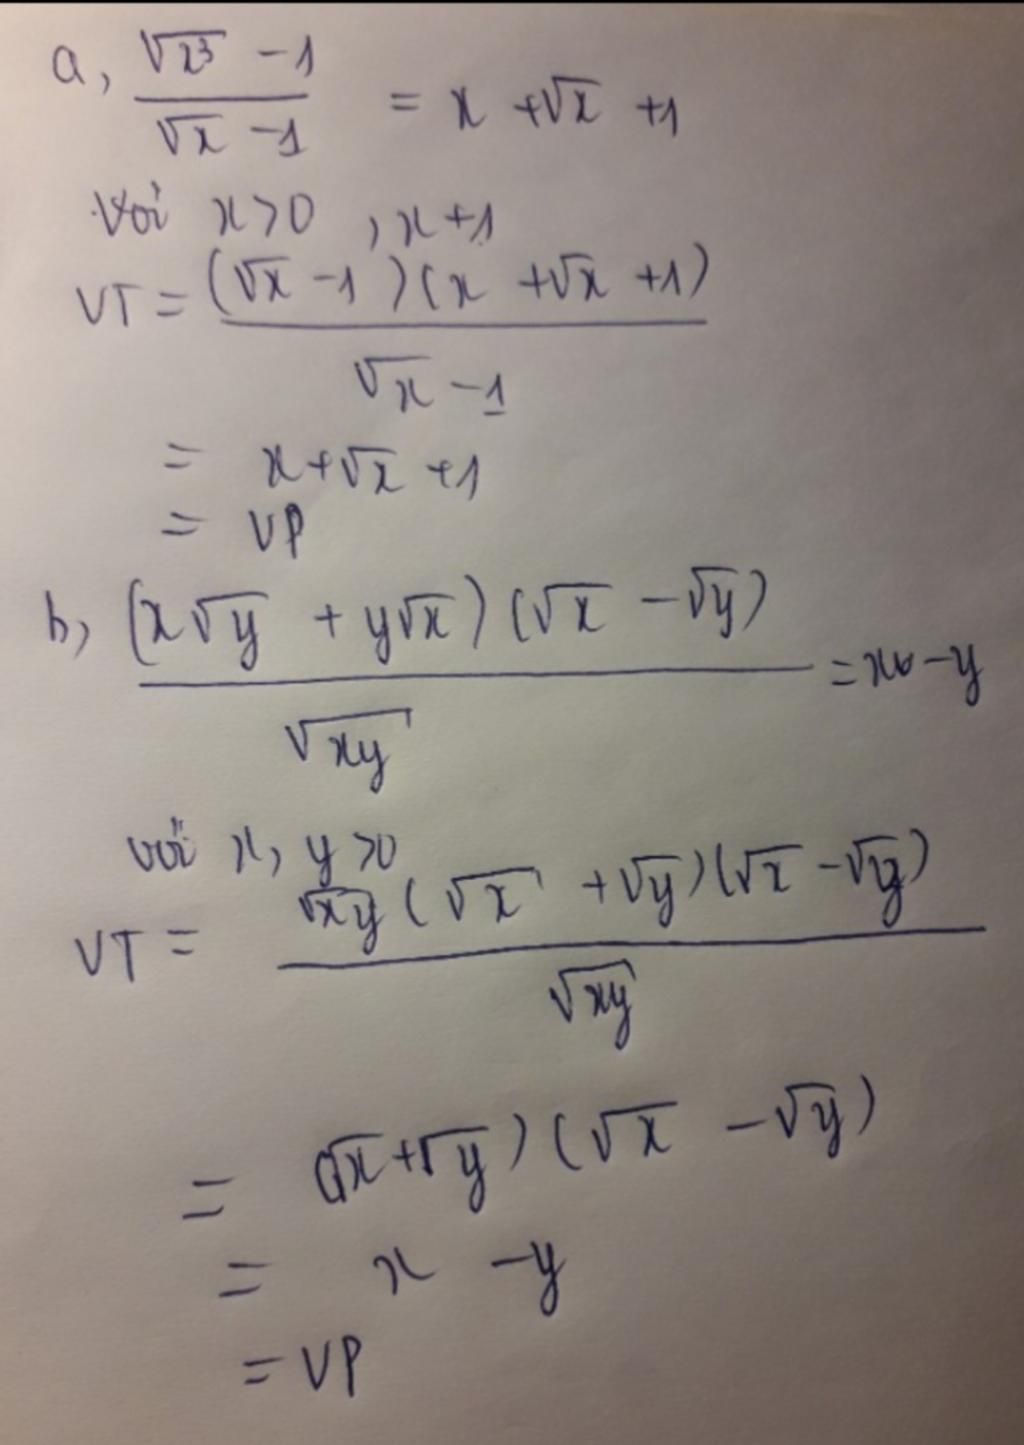 a, (√x³ - 1)/(√x - 1) = x + √x + 1
Với x>0 , x+1
VT = ((√x - 1)(x + √x + 1))/(√x - 1)
= x + √x + 1
= VP
b, ((x√y + y√x)(√x - √y))/√xy = x - y
với x, y>0
VT = (√xy(√x + √y)(√x - √y))/√xy
= (√x + √y)(√x - √y)
= x - y
= VP